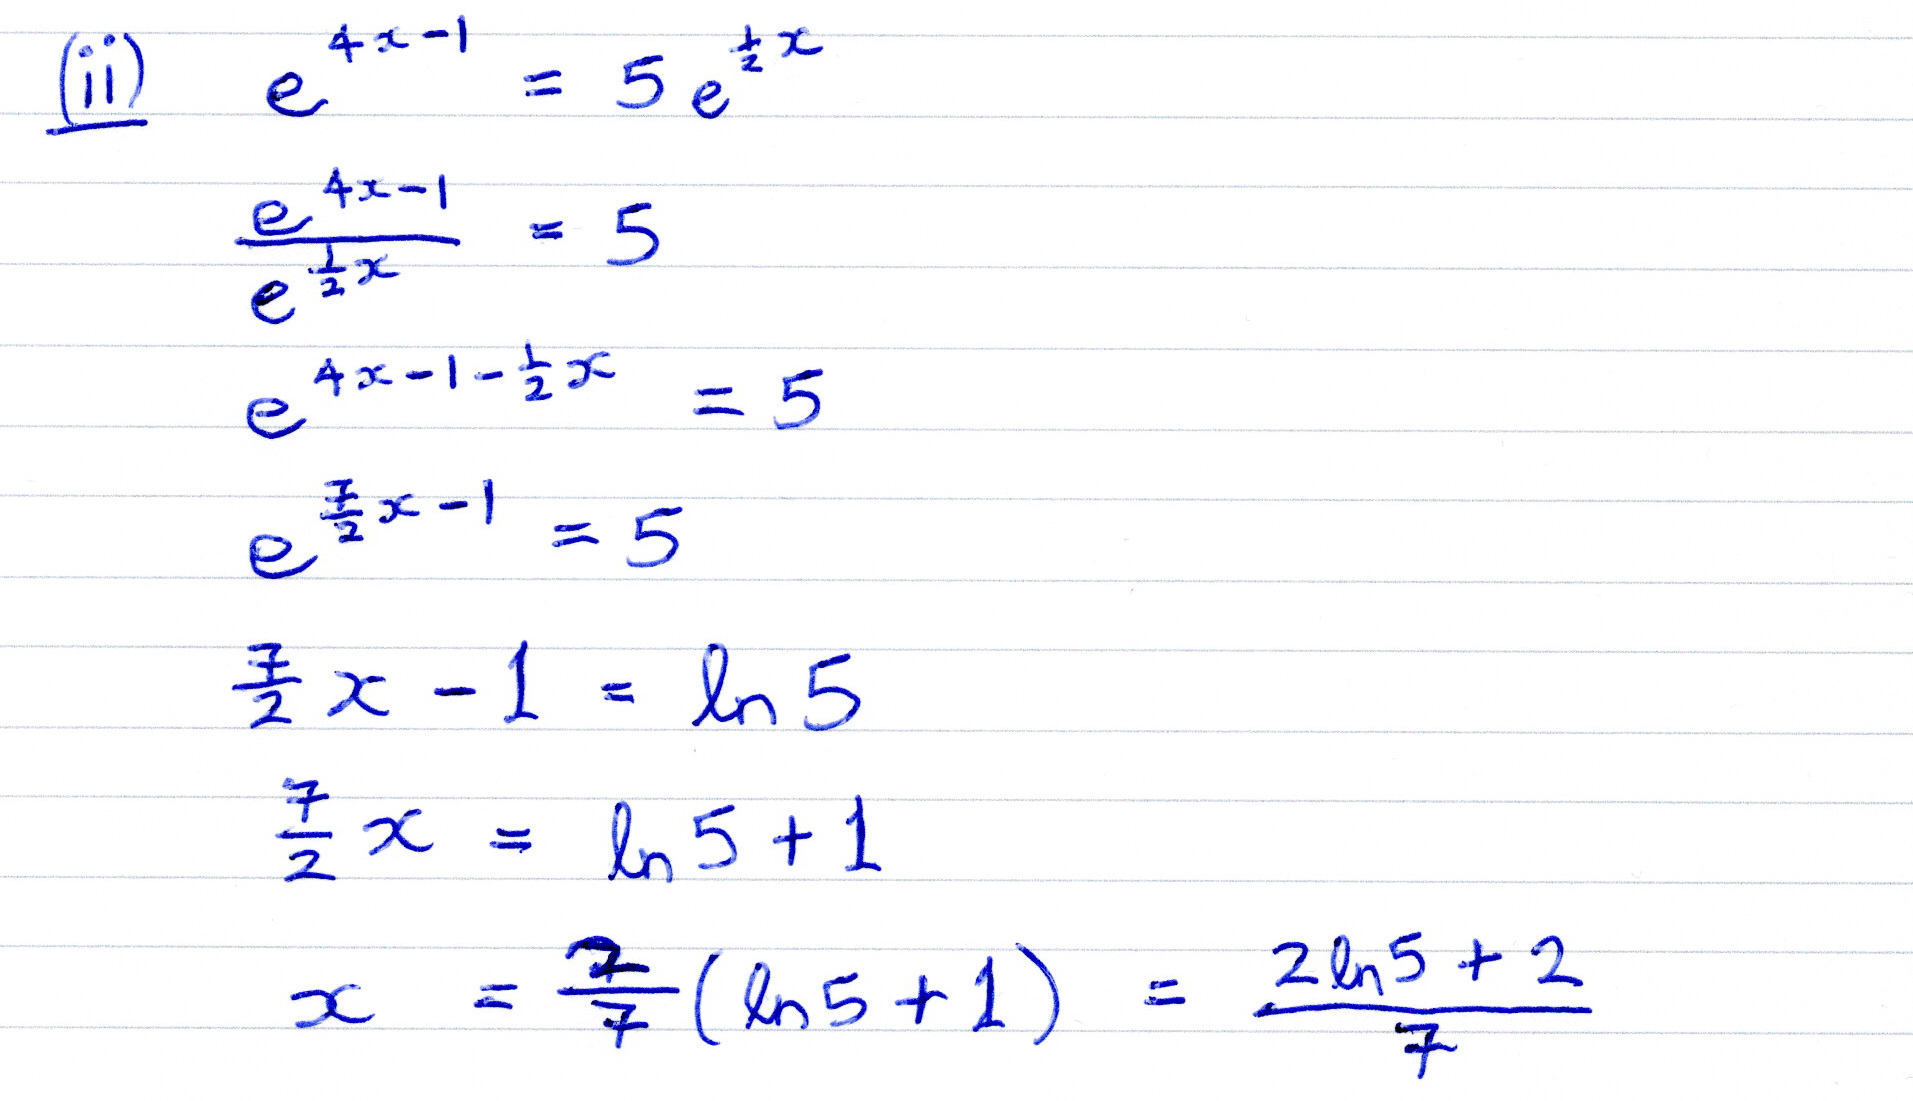 (ii) e^{4x-1} = 5 e^{\frac{1}{2}x}
\frac{e^{4x-1}}{e^{\frac{1}{2}x}} = 5
e^{4x-1-\frac{1}{2}x} = 5
e^{\frac{7}{2}x-1} = 5
\frac{7}{2}x - 1 = ln 5
\frac{7}{2}x = ln 5 + 1
x = \frac{2}{7}(ln 5 + 1) = \frac{2 ln 5 + 2}{7}